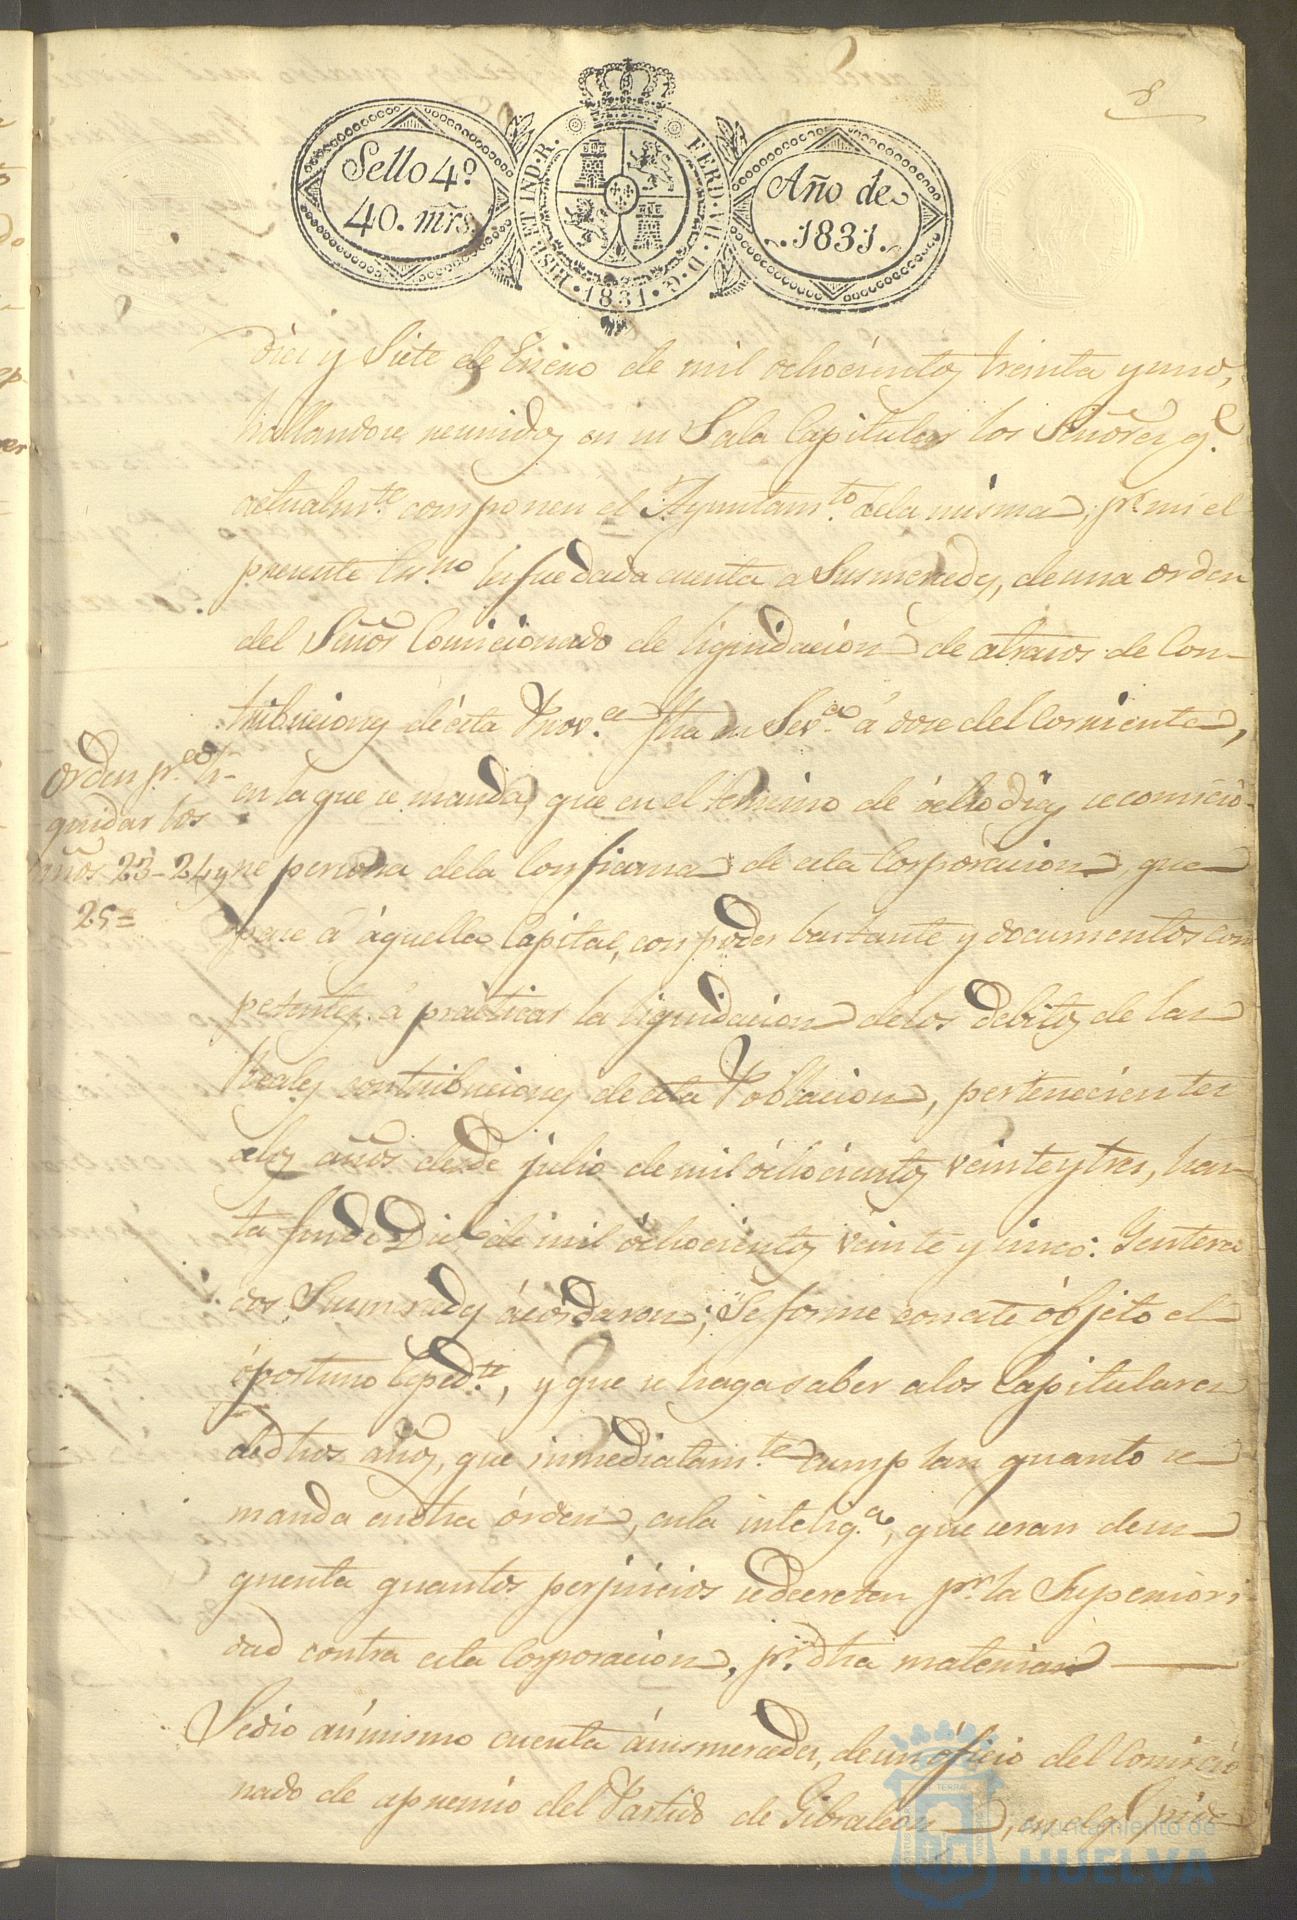 8
Sello 4º
40. mrs.
HISP. ET IND. R. FERD. VII. D. G. 1831.
Año de
1831.
diez y Siete de Enero de mil ochocientos treinta y uno,
hallandose reunidos en su Sala Capitular los Señores q.e
actualm.te componen el Ayuntam.to dela misma, p.r mi el
presente Ess.no les fue dada cuenta a Susmercedes, de una orden
del Señor Comicionado de liquidacion de atrasos de Con-
tribuciones de esta Prov.a fha en Sev.a á doce del Corriente,
en la que se manda, que en el termino de ócho dias se comicio-
ne persona dela Confianza de esta Corporacion, que
pase á aquella Capital, con poder bastante y documentos com
petentes á practicar la liquidacion delos debitos de las
Reales contribuciones de esta Poblacion, pertenecientes
alos años desde julio de mil ochocientos veinte y tres, has-
ta fin de Dic.e de mil óchocientos veinte y cinco: Y entera
dos Susmercedes ácordaron; Se forme con este óbjeto el
óportuno Exped.te, y que se haga saber alos Capitulares
dedhos años, que inmediatam.te cumplan quanto se
manda endha órden, en la intelig.a, que seran de su
quenta quantos perjuicios sedecreten p.r la Superiori-
dad contra esta Corporacion, p.r dha materia
Orden p.a li-
quidar los
años 23-24 y
25=
Sedio asimismo cuenta ásusmercedes, deun óficio del Comicio
nado de apremio del Partido de Gibraleon
Ayuntamiento de
HUELVA